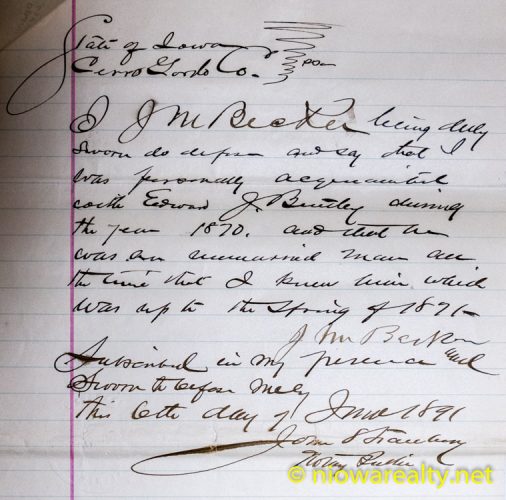 State of Iowa
Cerro Gordo Co.
I J M Becker being duly
sworn do depose and say that I
was personally acquainted
with Edward J. Bentley during
the year 1870. and that he
was an unmarried man all
the time that I knew him which
was up to the Spring of 1871
J M Becker
Subscribed in my presence and
Sworn to before me by
this 6th day of June 1891
John S
Notary Public
© niowarealty.net